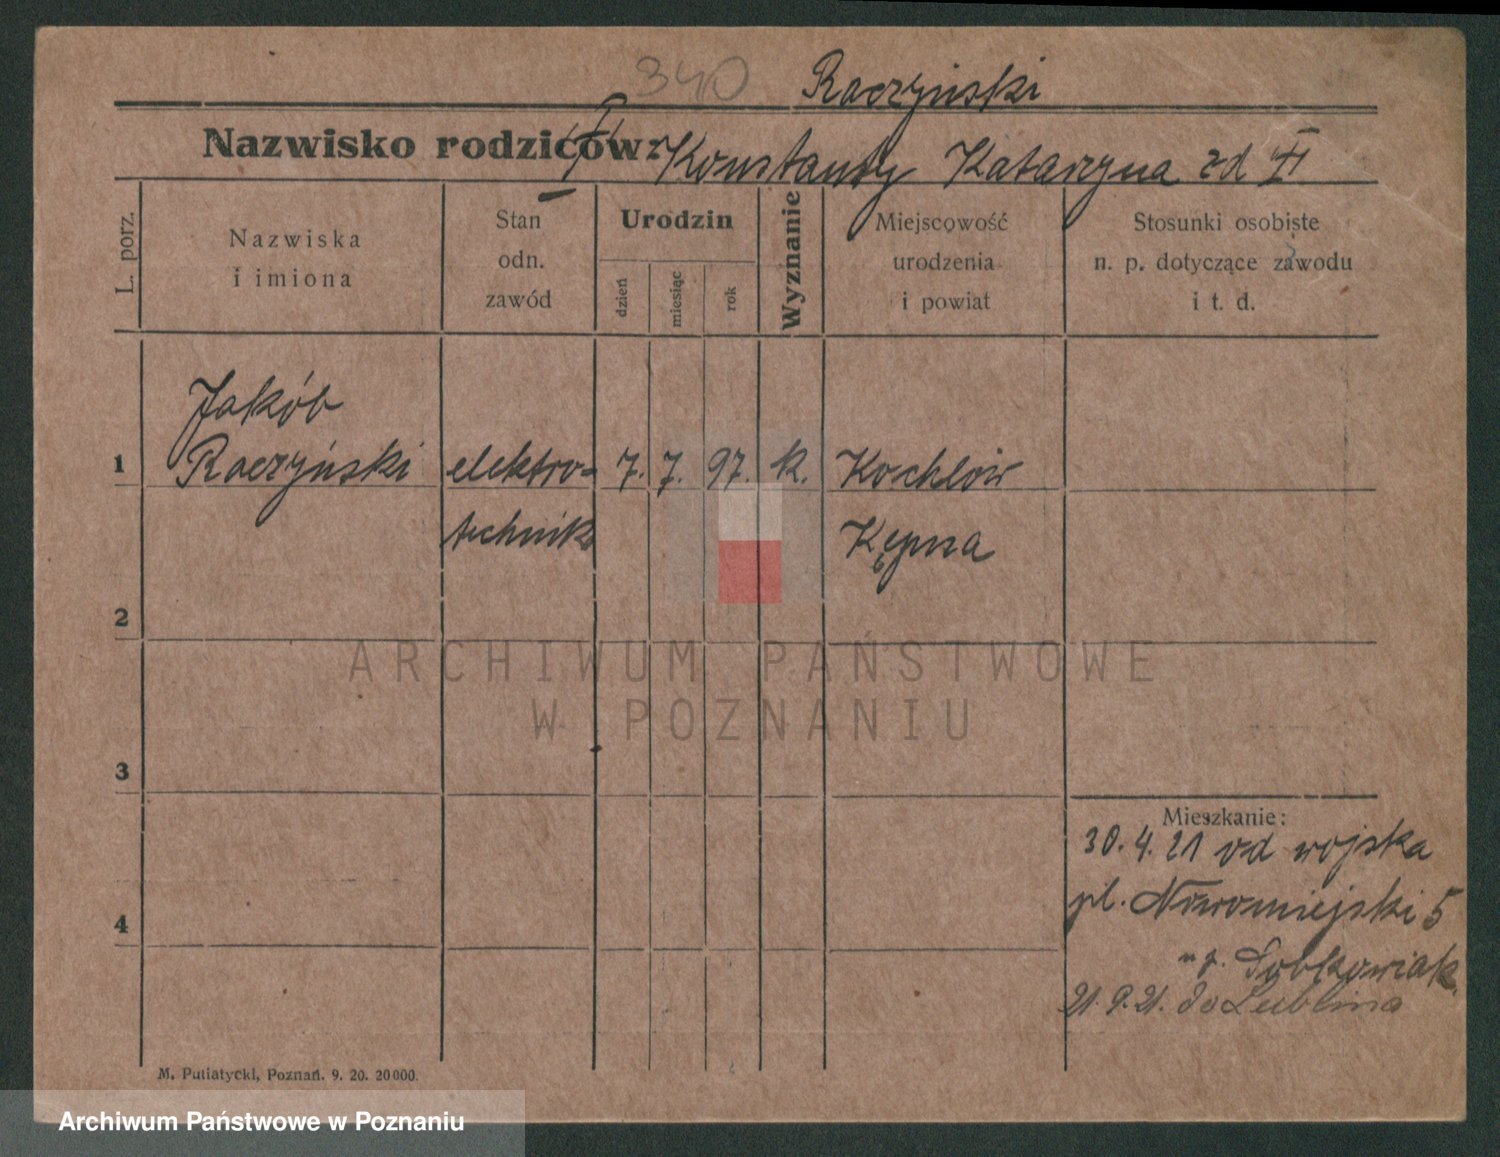 340 Raczyński
Nazwisko rodziców: Konstanty Katarzyna zd
L. porz.
Nazwiska
i imiona
Stan
odn.
zawód
Urodzin
dzień
miesiąc
rok
Wyznanie
Miejscowość
urodzenia
i powiat
Stosunki osobiste
n. p. dotyczące zawodu
i t. d.
Jakób
1 Raczyński elektro- 7. 7. 97. k. Kochłów
technik Kępna
2
3
4
Mieszkanie:
30.4.21 od wojska
pl. Nowomiejski 5
21.9.21. do Lublina
M. Putiatycki, Poznań. 9. 20. 20000.
ARCHIWUM PAŃSTWOWE
W POZNANIU
Archiwum Państwowe w Poznaniu